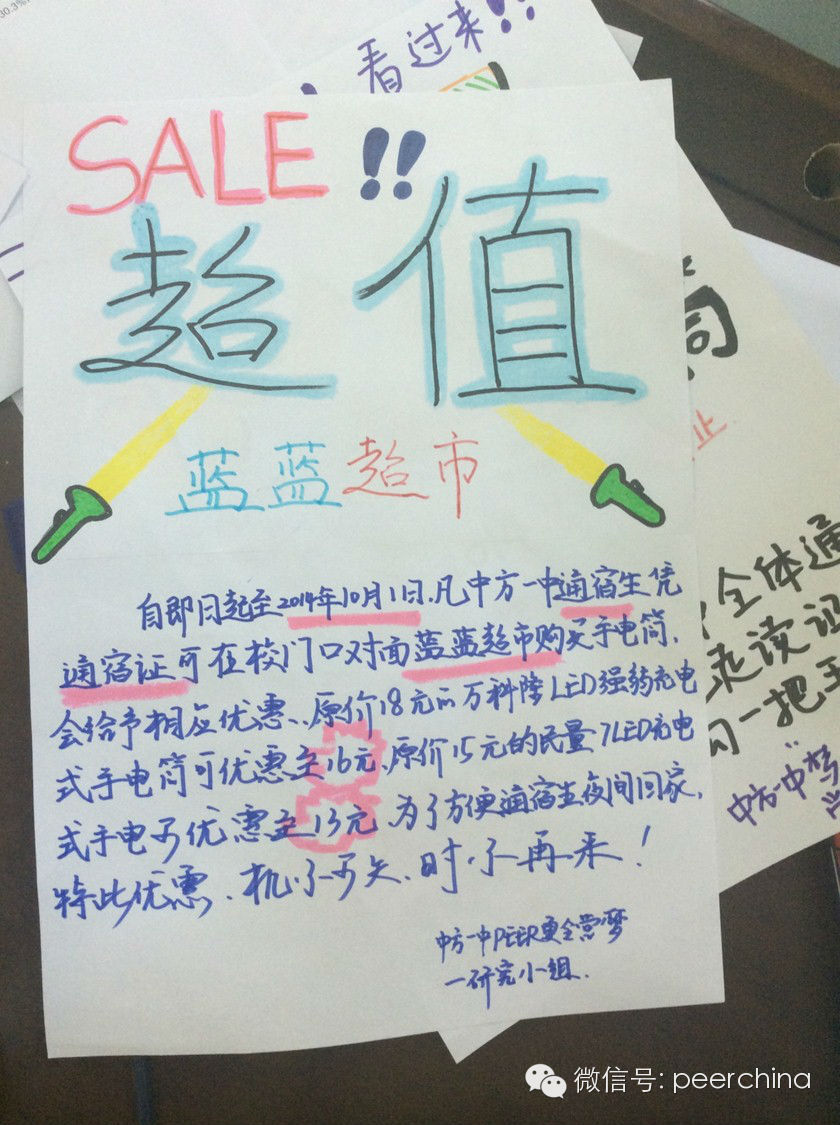 30.3%
看过来!!
SALE!!
超值
蓝蓝超市
自即日起至2014年10月1日.凡中方一中通宿生凭
通宿证可在校门口对面蓝蓝超市购买手电筒,
会给予相应优惠.原价18元的万科隆LED强弱充电
式手电筒可优惠至16元.原价15元的民量7LED充电
式手电可优惠至13元.为了方便通宿生夜间回家,
特此优惠.机不可失.时不再来!
中方一中PEER
一研究小组.
筒
止
全体通
走读证
一把手
中方一中"梦
微信号: peerchina